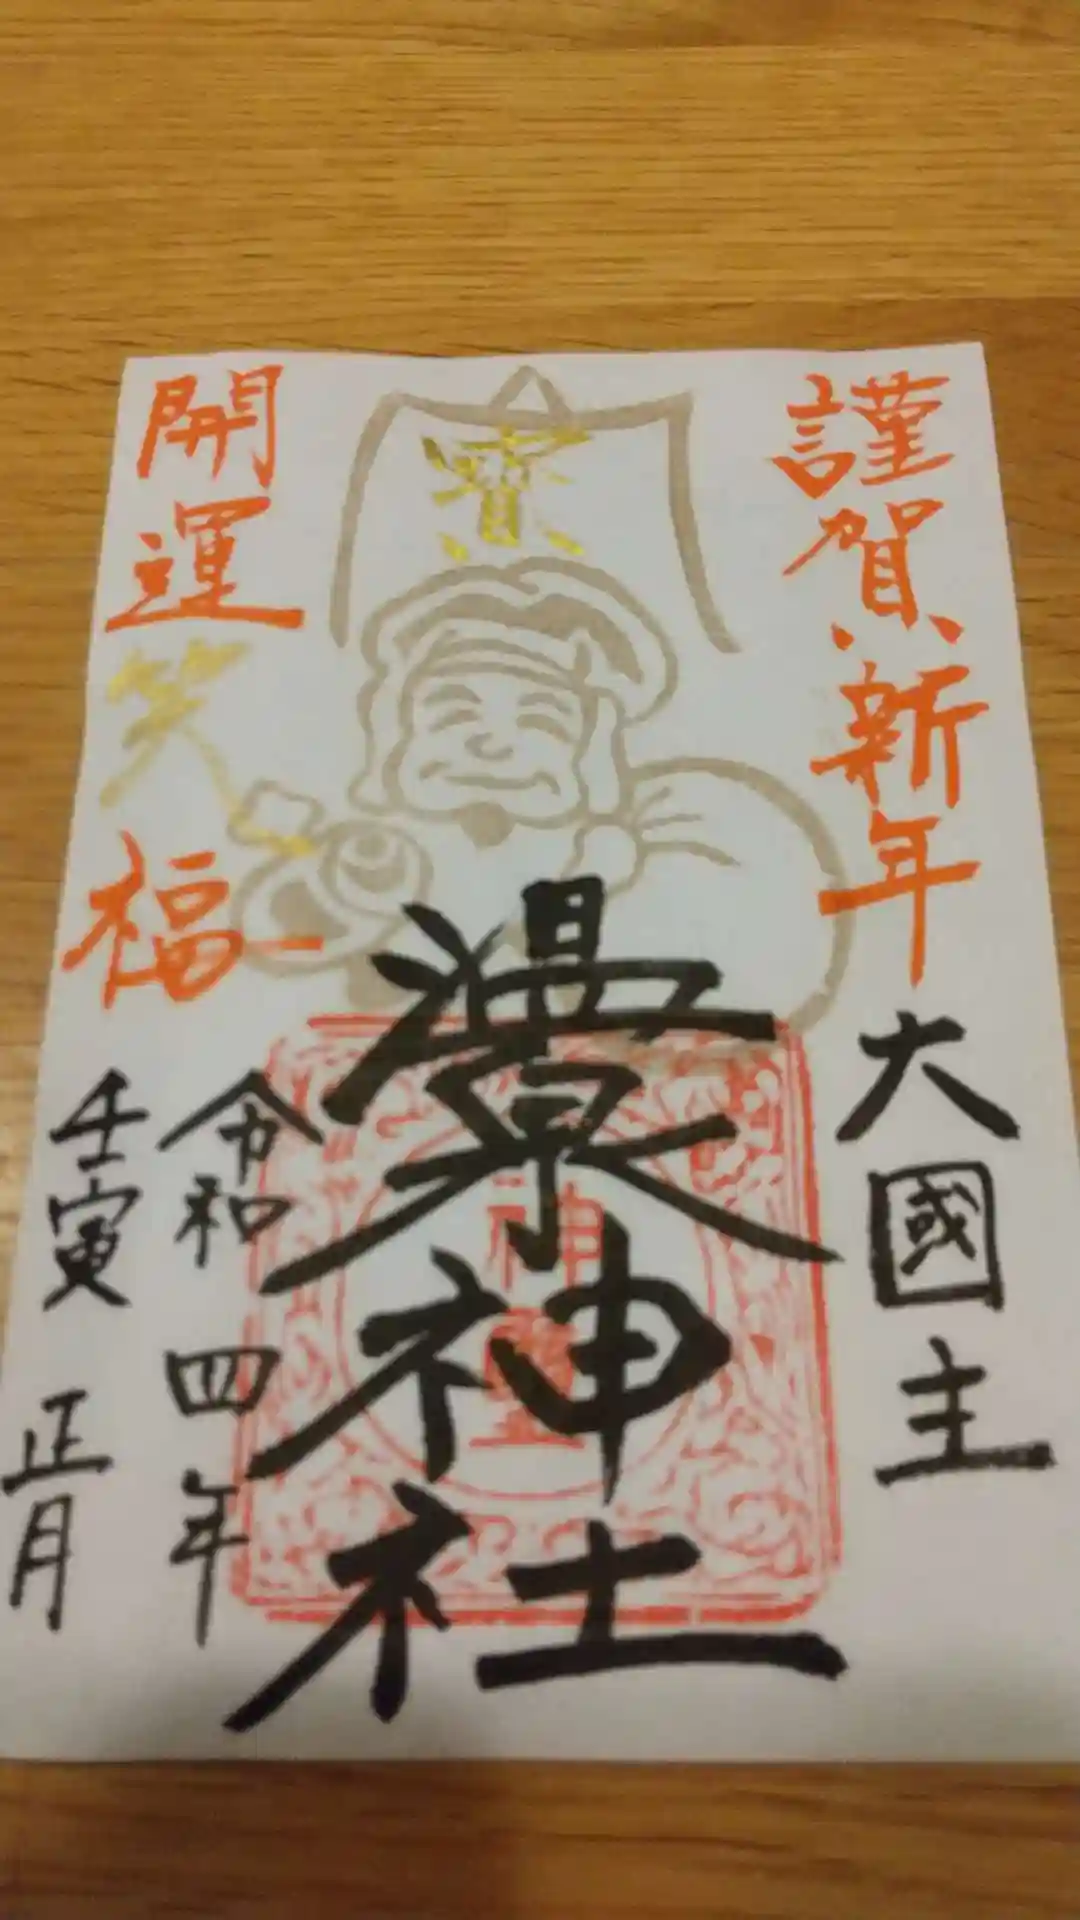 謹賀新年
大國主
寳
神社
開運笑福
令和四年
壬寅 正月